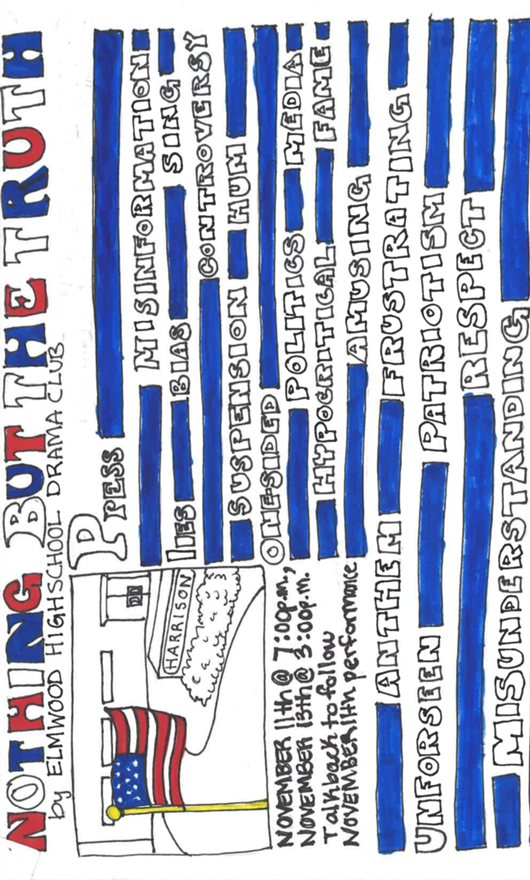 NOTHING BUT THE TRUTH
by ELMWOOD HIGHSCHOOL DRAMA CLUB
HARRISON
PRESS
MISINFORMATION
lies BIAS SING
CONTROVERSY
SUSPENSION HUM
ONE-SIDED
POLITICS MEDIA
HYPOCRITICAL FAME
AMUSING
NOVEMBER 11th @ 7:00p.m.,
NOVEMBER 13th @ 3:00p.m.
Talkback to follow
NOVEMBER 11th performance
ANTHEM FRUSTRATING
UNFORSEEN PATRIOTISM
RESPECT
MISUNDERSTANDING